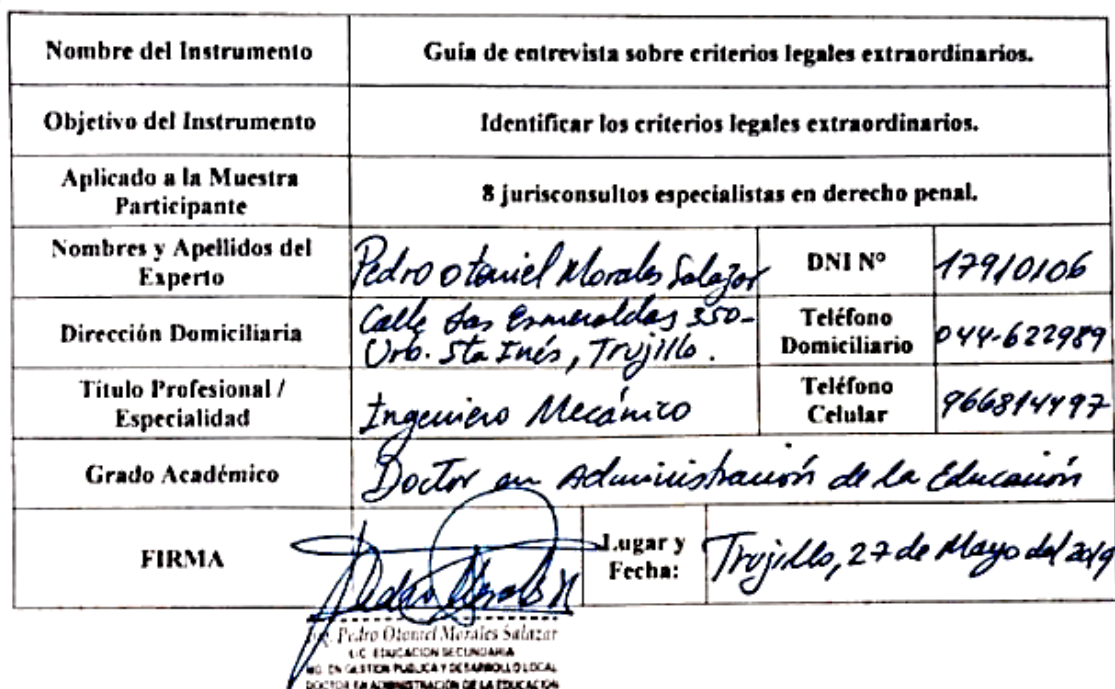 Nombre del Instrumento
Guía de entrevista sobre criterios legales extraordinarios.
Objetivo del Instrumento
Identificar los criterios legales extraordinarios.
Aplicado a la Muestra
Participante
8 jurisconsultos especialistas en derecho penal.
Nombres y Apellidos del
Experto
Pedro Otoniel Morales Salazar
DNI Nº
17910106
Dirección Domiciliaria
Calle Las Esmeraldas 350-
Urb. Sta Inés, Trujillo.
Teléfono
Domiciliario
044-622989
Título Profesional /
Especialidad
Ingeniero Mecánico
Teléfono
Celular
966814497
Grado Académico
Doctor en Administración de la Educación
FIRMA
Pedro Morales
Lugar y
Fecha:
Trujillo, 27 de Mayo del 2019
Pedro Otoniel Morales Salazar
LIC. EDUCACION SECUNDARIA
MG. EN GESTION PUBLICA Y DESARROLLO LOCAL
DOCTOR EN ADMINISTRACIÓN DE LA EDUCACION